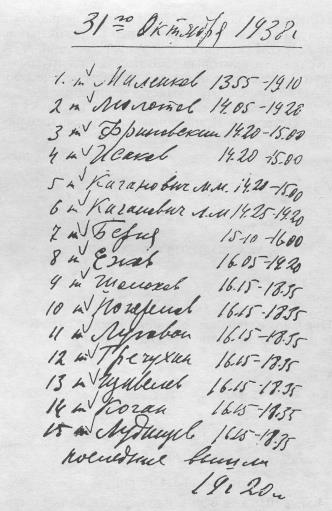 31го Октября 1938г
1. т Маленков 13.55-19.10
2 т Молотов 14.05-19.20
3 т Фриновский 14.20-15.00
4 т Исаков 14.20-15.00
5 т Каганович М.М. 14.20-15.00
6 т Каганович Л.М 14.25-19.20
7 т Берия 15.10-16.00
8 т Ежов 16.05-19.20
9 т Шолохов 16.15-18.35
10 т Погорелов 16.15-18.35
11 т Луговой 16.15-18.35
12 т Гречухин 16.15-18.35
13 т 16.15-18.35
14 т Коган 16.15-18.35
15 т Лудищев 16.15-18.35
последние вышли
19ч 20м